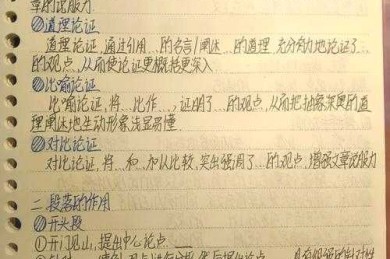 章的说服力
②道理论证
道理论证,通过引用…的名言/阐述…的道理,充分有力地论证了…
的观点,从而使论证更概括更深入
③比喻论证
比喻论证,将…比作…,证明了…的观点,从而把抽象深奥的道
理阐述地生动形象浅显易懂
④对比论证
对比论证,将…和…加以比较,突出强调了…的观点,增强文章说服力
二 段落的作用
①开头段
①开门见山,提出中心论点
后提出论点